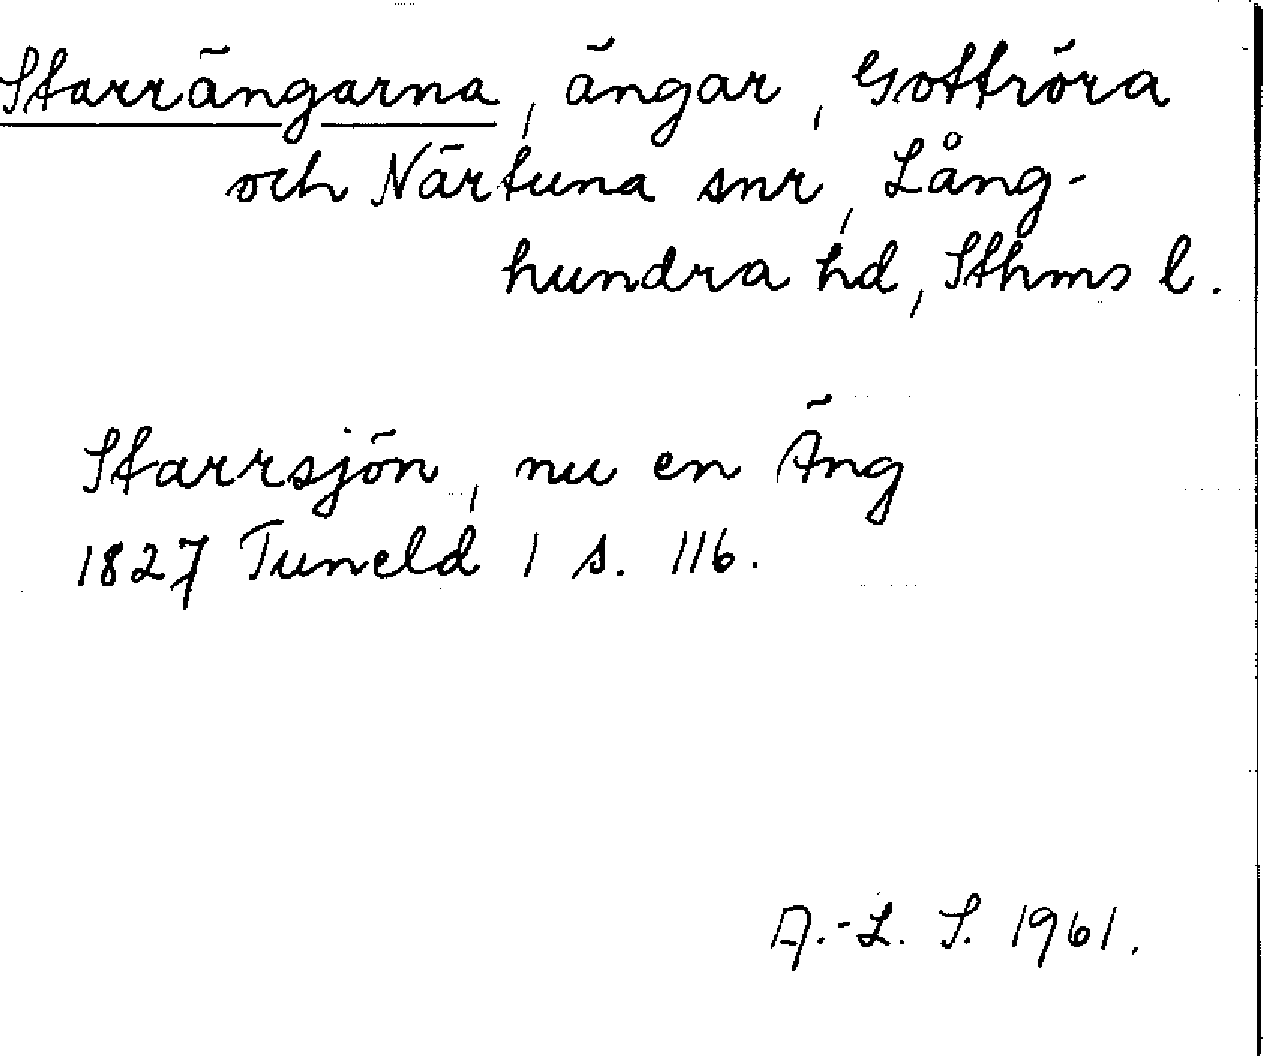 Starrängarna, ängar, Gottröra
och Närtuna snr, Lång-
hundra hd, Sthms l.
Starrsjön, nu en Äng
1827 Tuneld 1 s. 116.
A.-L. S. 1961.